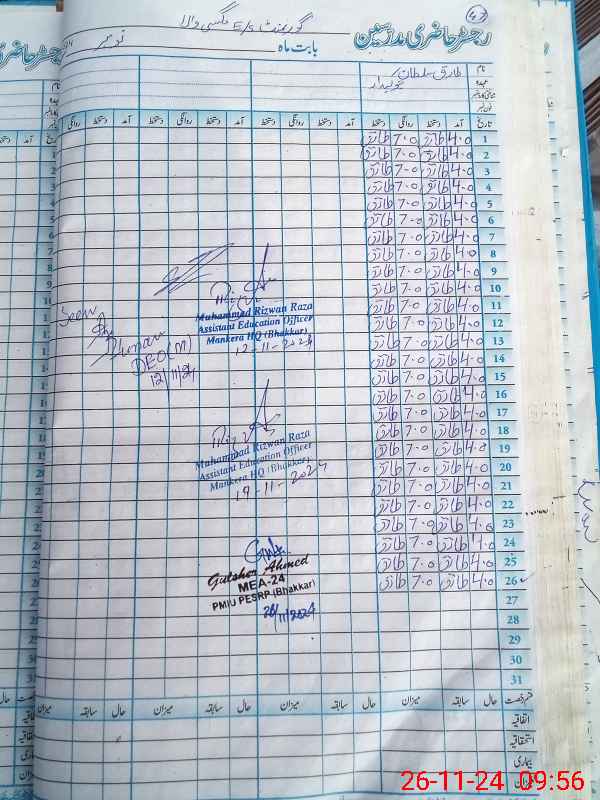 47
رجسٹر حاضری مدرسین
گورنمنٹ E/S
بابت ماہ نومبر
نام طارق سلطان
عہدہ چوکیدار
تاریخ آمد دستخط روانگی دستخط آمد دستخط روانگی دستخط آمد دستخط روانگی دستخط
1 4.0 طارق 7.0 طارق
2 4.0 طارق 7.0 طارق
3 4.0 طارق 7.0 طارق
4 4.0 طارق 7.0 طارق
5 4.0 طارق 7.0 طارق
6 4.0 طارق 7.0 طارق
7 4.0 طارق 7.0 طارق
8 4.0 طارق 7.0 طارق
9 4.0 طارق 7.0 طارق
10 4.0 طارق 7.0 طارق
11 4.0 طارق 7.0 طارق
12 4.0 طارق 7.0 طارق
13 4.0 طارق 7.0 طارق
14 4.0 طارق 7.0 طارق
15 4.0 طارق 7.0 طارق
16 4.0 طارق 7.0 طارق
17 4.0 طارق 7.0 طارق
18 4.0 طارق 7.0 طارق
19 4.0 طارق 7.0 طارق
20 4.0 طارق 7.0 طارق
21 4.0 طارق 7.0 طارق
22 4.0 طارق 7.0 طارق
23 4.0 طارق 7.0 طارق
24 4.0 طارق 7.0 طارق
25 4.0 طارق 7.0 طارق
26 4.0 طارق 7.0 طارق
27
28
29
30
31
Muhammad Rizwan Raza
Assistant Education Officer
Mankera HQ (Bhakkar)
12-11-2024
Seen
DEO(M)
12/11/24
Muhammad Rizwan Raza
Assistant Education Officer
Mankera HQ (Bhakkar)
19-11-2024
Gulsher Ahmed
MEA-24
PMIU PESRP (Bhakkar)
26/11/2024
قسم رخصت حال سابقہ میزان حال سابقہ میزان حال سابقہ میزان
اتفاقیہ
استحقاقیہ
بیماری
میزان
26-11-24 09:56